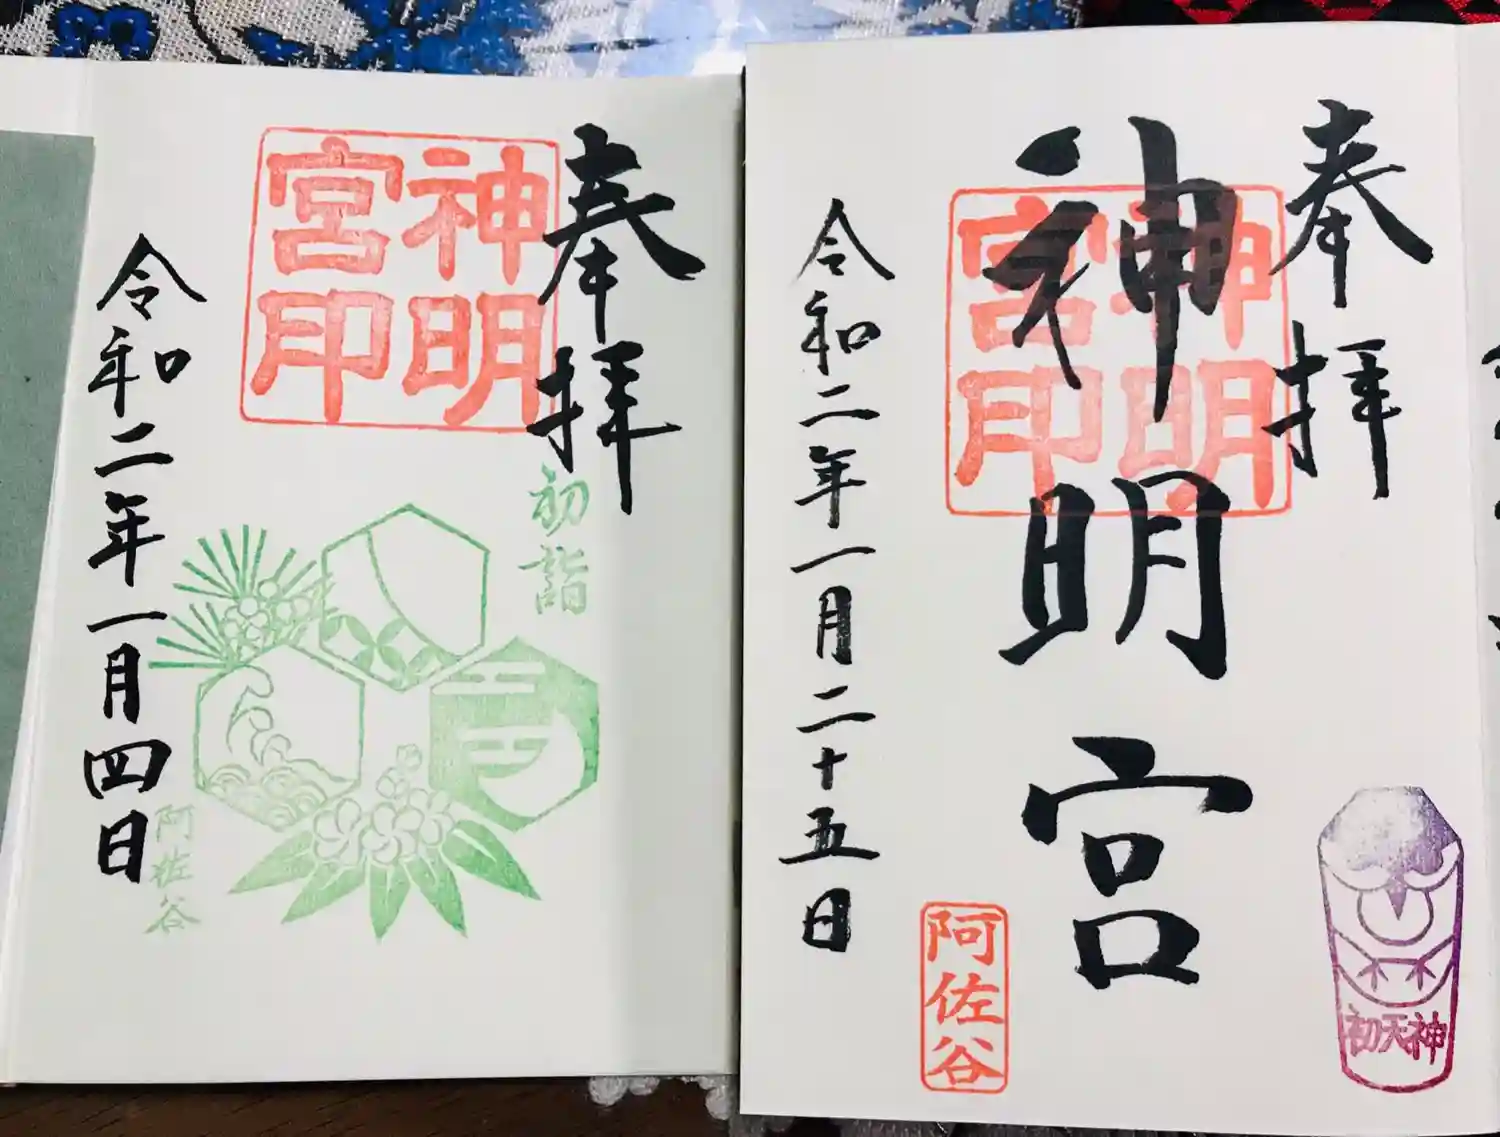 奉拝
神明
宮印
初詣
令和二年一月四日
阿佐谷
奉拝
神明宮
神明
宮印
令和二年一月二十五日
阿佐谷
初天神